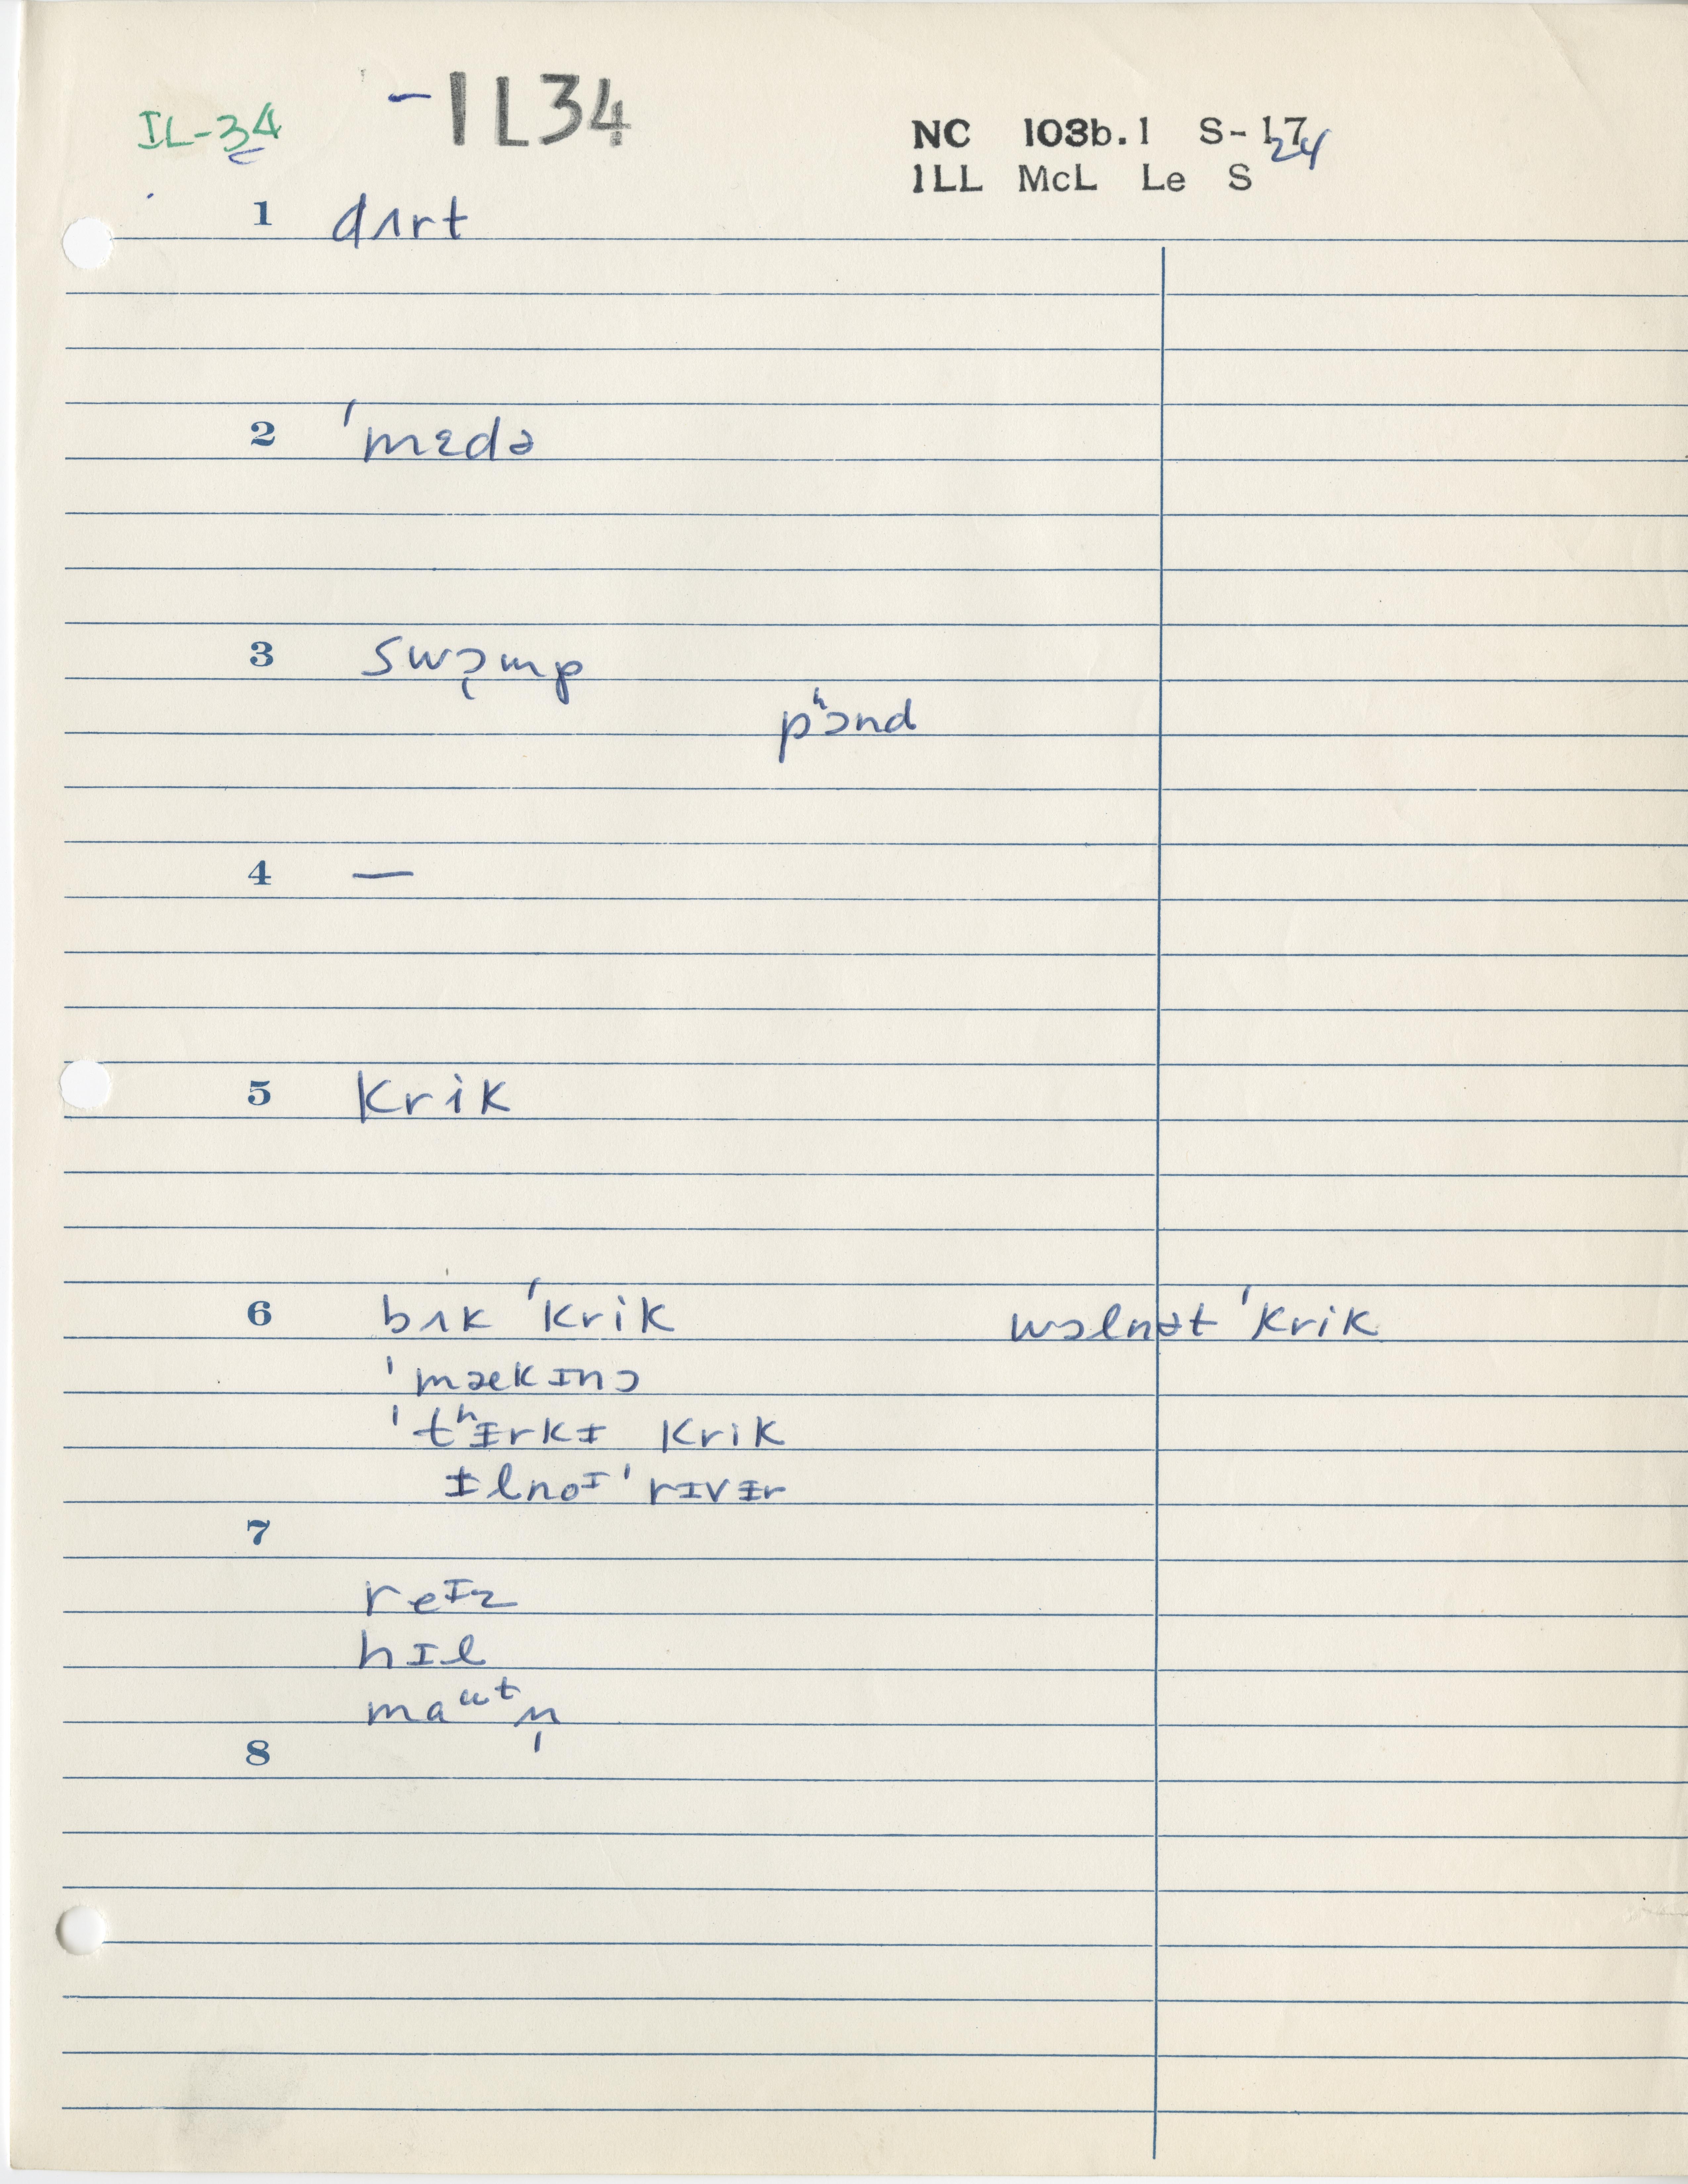 IL-34 -IL34 NC 103b.1 S-17 24
ILL McL Le S
1 dʌrt
2 ˈmɛdə
3 swɔ̨mp
pʰɔnd
4 —
5 krik
6 bʌk ˈkrik wɔlnət ˈkrik
ˈmækɪnɔ
ˈtʰɨrkɨ krik
ɨlnoᴵ ˈrɪvɨr
7
reᴵz
hɪl
maᵘᵗn̩
8